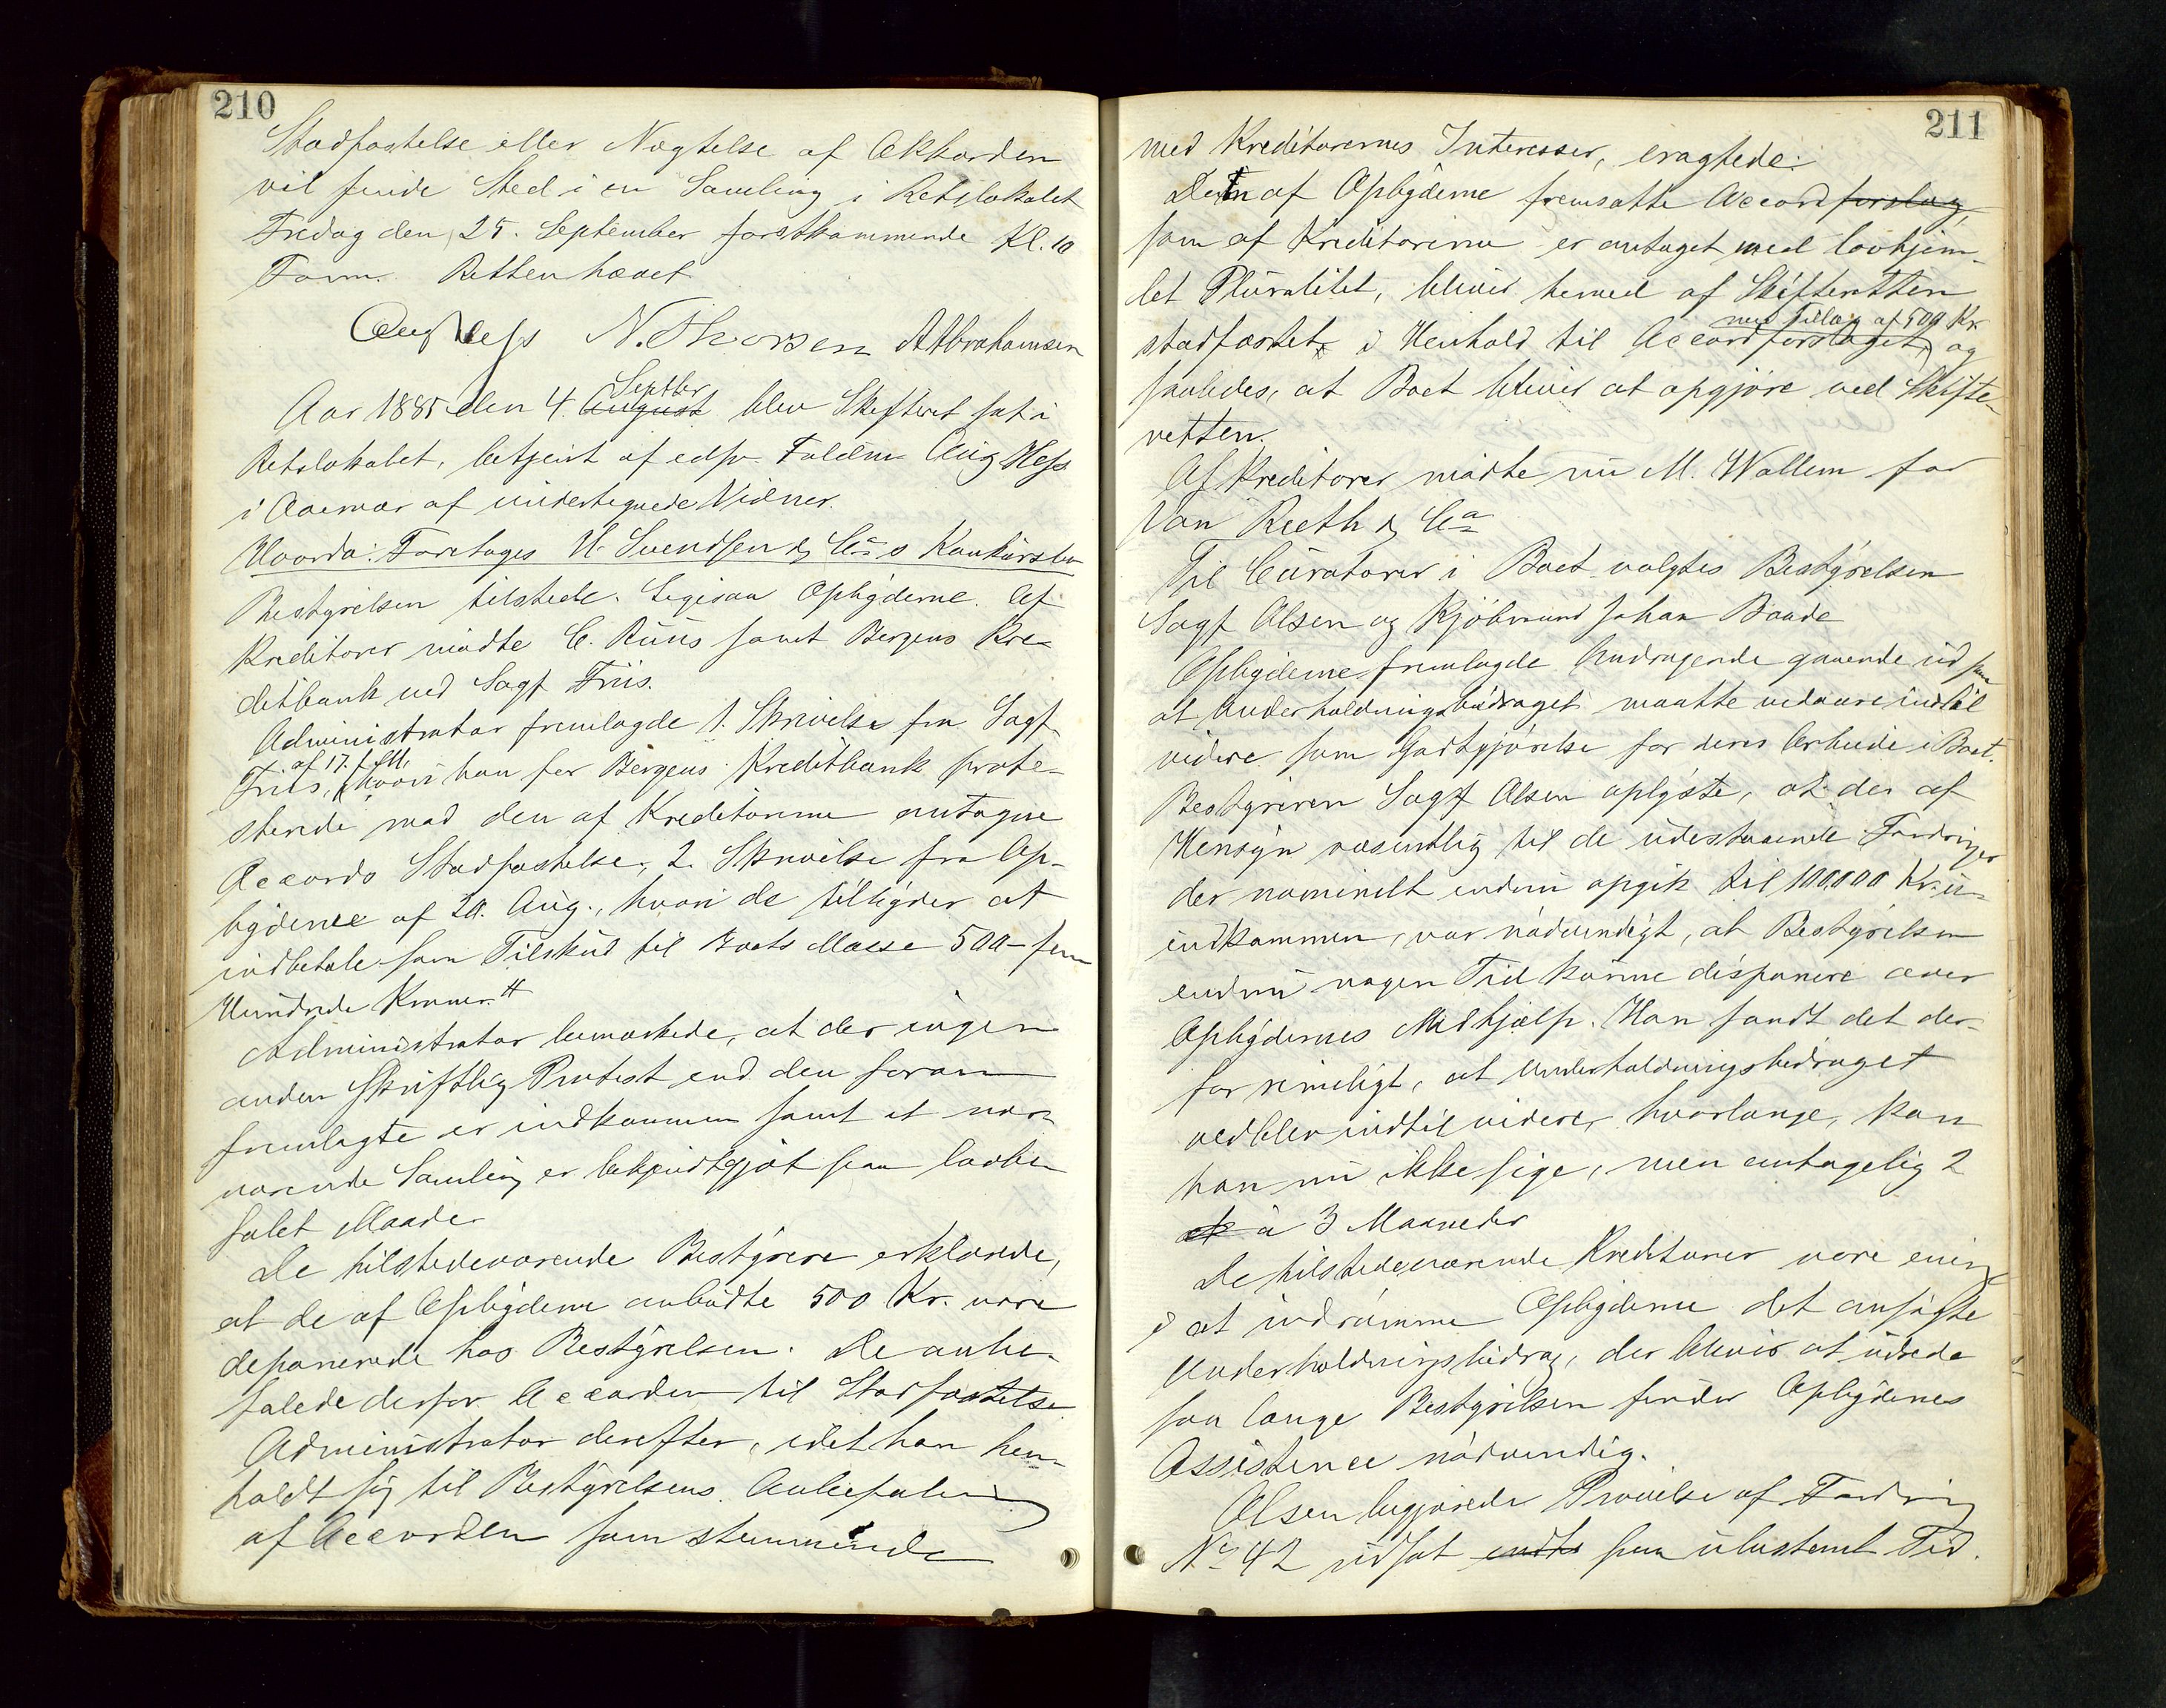 210
Stadfæstelse eller Nægtelse af Akkorden
vil finde Sted i en Samling i Retslokalet
Fredag den 25. September førstkommende Kl. 10
Form. Retten hævet
Aug Hess N. Thorsen A Abrahamsen
Septbr
Aar 1885 den 4. August blev Skifteret sat i
Retslokalet, betjent af edsv. Fuldm. Aug Hess
i Nærvær af undertegnede Vidner.
Hvorda: Foretages H. Svendsen & Co s Konkursbo
Bestyrelsen tilstede. Ligesaa Opbyderne. Af
Kreditorer mødte C. Ruus samt Bergens Kre-
ditbank ved Sagf Friis.
Administrator fremlagde 1. Skrivelse fra Sagf
af 17. f. M.
Friis, hvori han for Bergens Kreditbank prote-
sterede mod den af Kreditorerne antagne
Accords Stadfæstelse, 2. Skrivelse fra Op-
byderne af 20. Aug., hvori de tilbyder at
indbetale som Tilskud til Boets Masse 500 - fem
Hundrede Kroner.
Administrator bemærkede, at der ingen
anden skriftlig Protest end den foran
fremlagte er indkommen samt at nær-
værende Samling er bekjendtgjort paa lovbe-
falet Maade.
De tilstedeværende Bestyrere erklærede,
at de af Opbyderne anbudte 500 Kr. være
deponerede hos Bestyrelsen. De anbe-
falede derfor Accorden til Stadfæstelse
Administrator derefter, idet han hen-
holdt sig til Bestyrelsens Anbefaling
af Accorden som stemmende
211
med Kreditorernes Interesser, eragtede:
Den af Opbyderne fremsatte Accordforslag,
som af Kreditorerne er antaget med lovhjem-
let Pluralitet, bliver herved af Skifteretten
med Tillæg af 500 Kr.
stadfæstet i Henhold til Accordforslaget, og
saaledes, at Boet bliver at opgjøre ved Skifte-
retten.
Af Kreditorer mødte nu M. Wallem for
Van Reeth & Co
Til Curatorer i Boet valgtes Bestyrelsen
Sagf Olsen og Kjøbmand Johan Baade
Opbyderne fremlagde Andragende gaaende ud paa
at Underholdningsbidraget maatte vedvare indtil
videre som Godtgjørelse for deres Arbeide i Boet.
Bestyreren Sagf Olsen oplyste, at der af
Hensyn væsentlig til de udestaaende Fordringer
der nominelt endnu opgik til 100,000 Kr. u-
indkommen, var nødvendigt, at Bestyrelsen
endnu nogen Tid kunne disponere over
Opbydernes Medhjælp. Han fandt det der-
for rimeligt, at Underholdningsbidraget
vedblev indtil videre, hvorlænge, kan
han nu ikke sige, men antagelig 2
à 3 Maaneder
De tilstedeværende Kreditorer vare enige
i at indrømme Opbyderne det ansøgte
Underholdningsbidrag, der bliver at udrede
saa længe Bestyrelsen finder Opbydernes
Assistence nødvendig.
Olsen begjærede Prøvelse af Fordring
No 42 udsat endte paa ubestemt Tid.